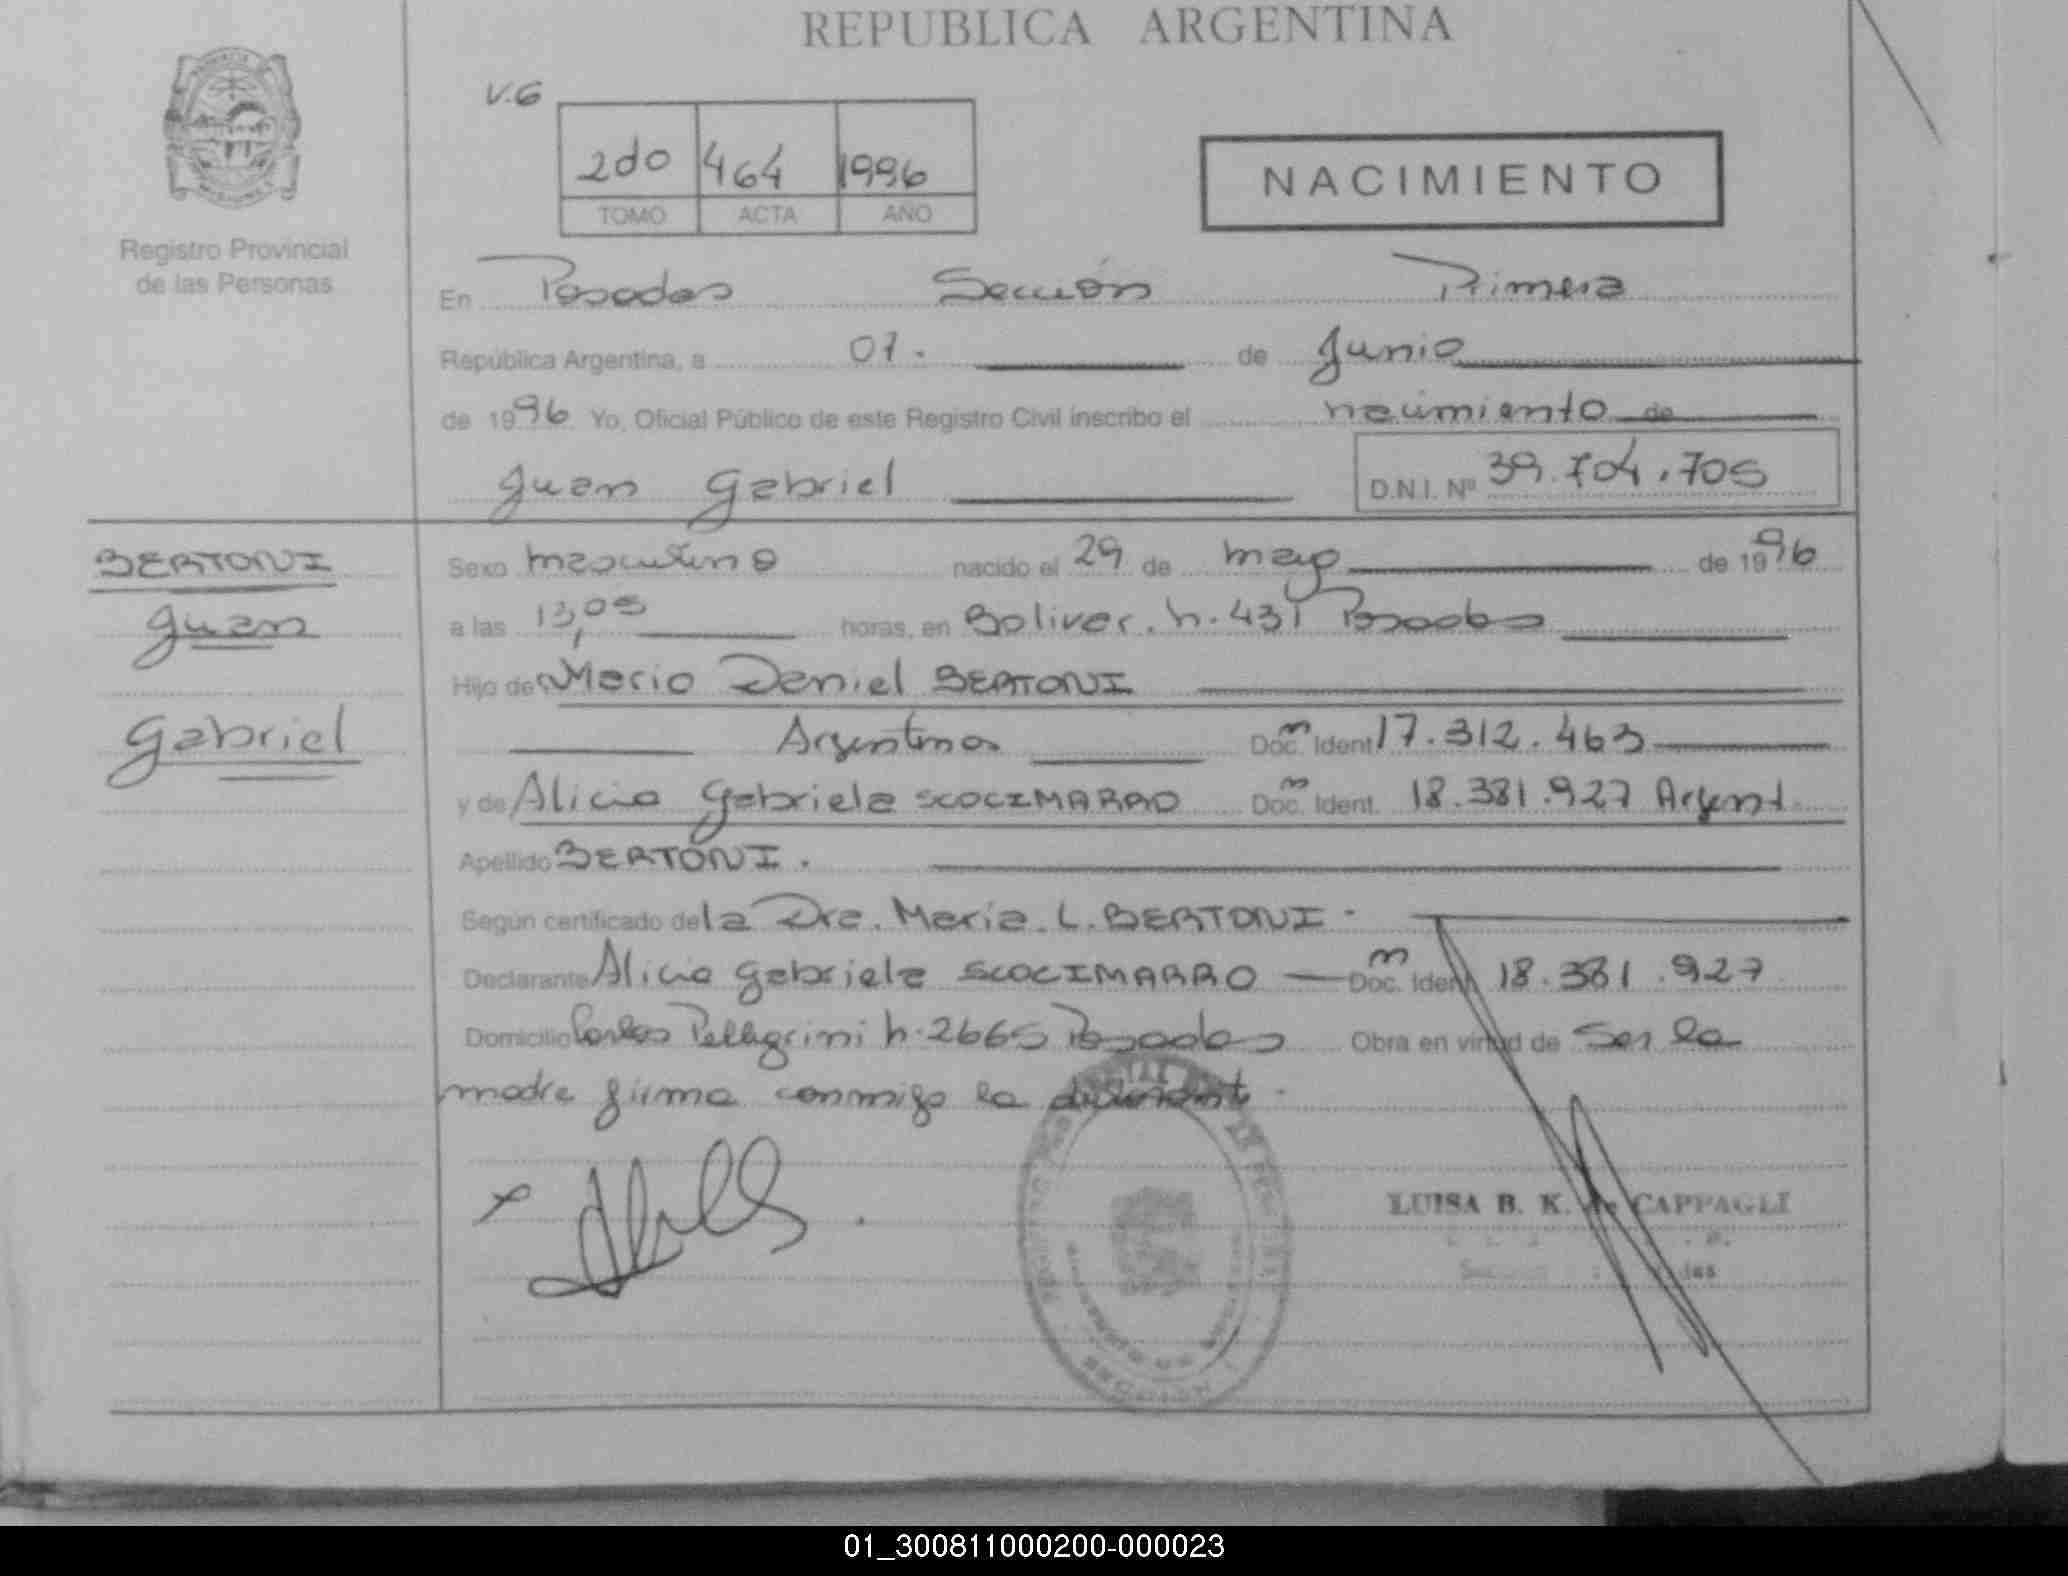 REPUBLICA ARGENTINA
V.6
2do 464 1996
TOMO ACTA AÑO
NACIMIENTO
Registro Provincial
de las Personas
En Posadas Sección Primera
República Argentina, a 07. de Junio
de 1996 Yo, Oficial Público de este Registro Civil inscribo el nacimiento de
Juan Gabriel D.N.I. Nº 39.704.705
BERTONI
Juan
Gabriel
Sexo masculino nacido el 29 de mayo de 1996
a las 13,05 horas, en Bolivar. n. 431 Posadas
Hijo de Mario Daniel BERTONI
Argentina Doc. Ident 17.312.463
y de Alicia Gabriela SCOCIMARRO Doc. Ident. 18.381.927 Argent.
Apellido BERTONI.
Según certificado de la Dra. María. L. BERTONI -
Declarante Alicia Gabriela SCOCIMARRO — Doc. Ident 18.381.927
Domicilio Carlos Pellegrini n. 2665 Posadas Obra en virtud de Ser la
madre firma conmigo la
LUISA B. K. de CAPPAGLI
01_300811000200-000023